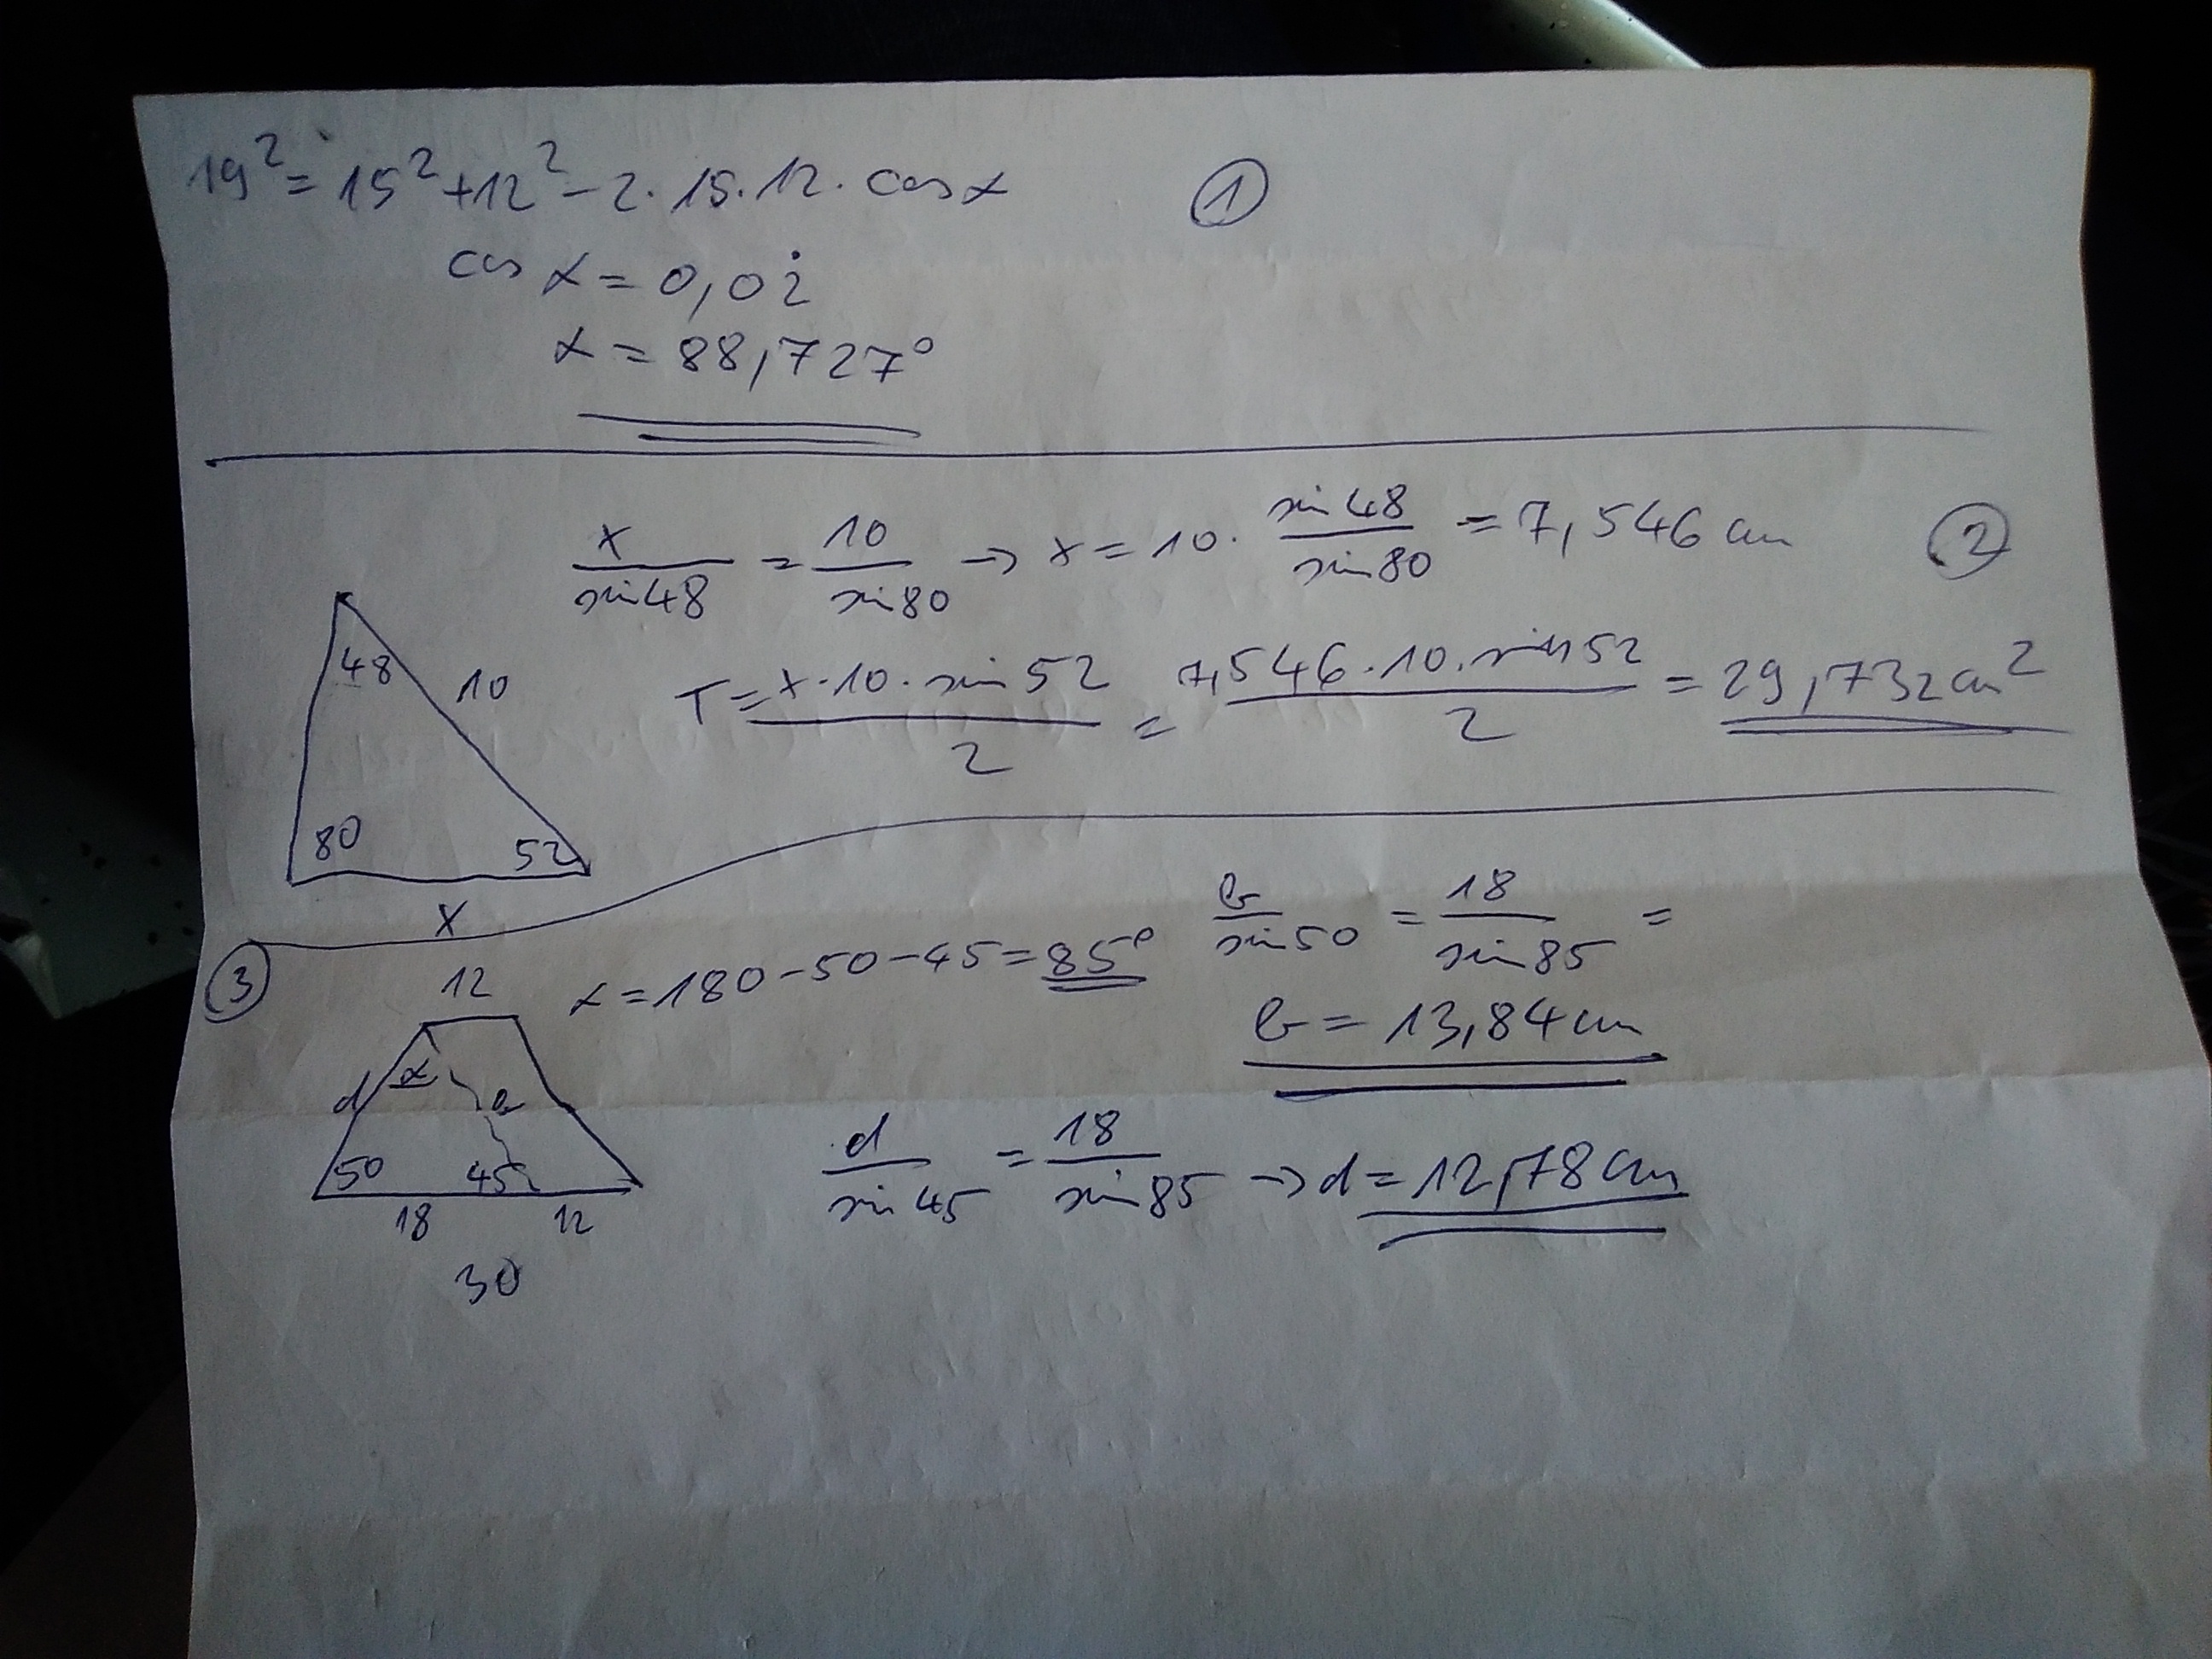 19² = 15² + 12² - 2 · 15 · 12 · cos α
①
cos α = 0,02̇
α = 88,727°
x/sin48 = 10/sin80 → x = 10 · sin48/sin80 = 7,546 cm
②
48
10
80
52
x
T = x · 10 · sin 52/2 = 7,546 · 10 · sin 52/2 = 29,732 cm²
③
12
α = 180 - 50 - 45 = 85°
b/sin50 = 18/sin85 =
b = 13,84 cm
α
d
50
45
18
12
30
d/sin 45 = 18/sin 85 → d = 12,78 cm